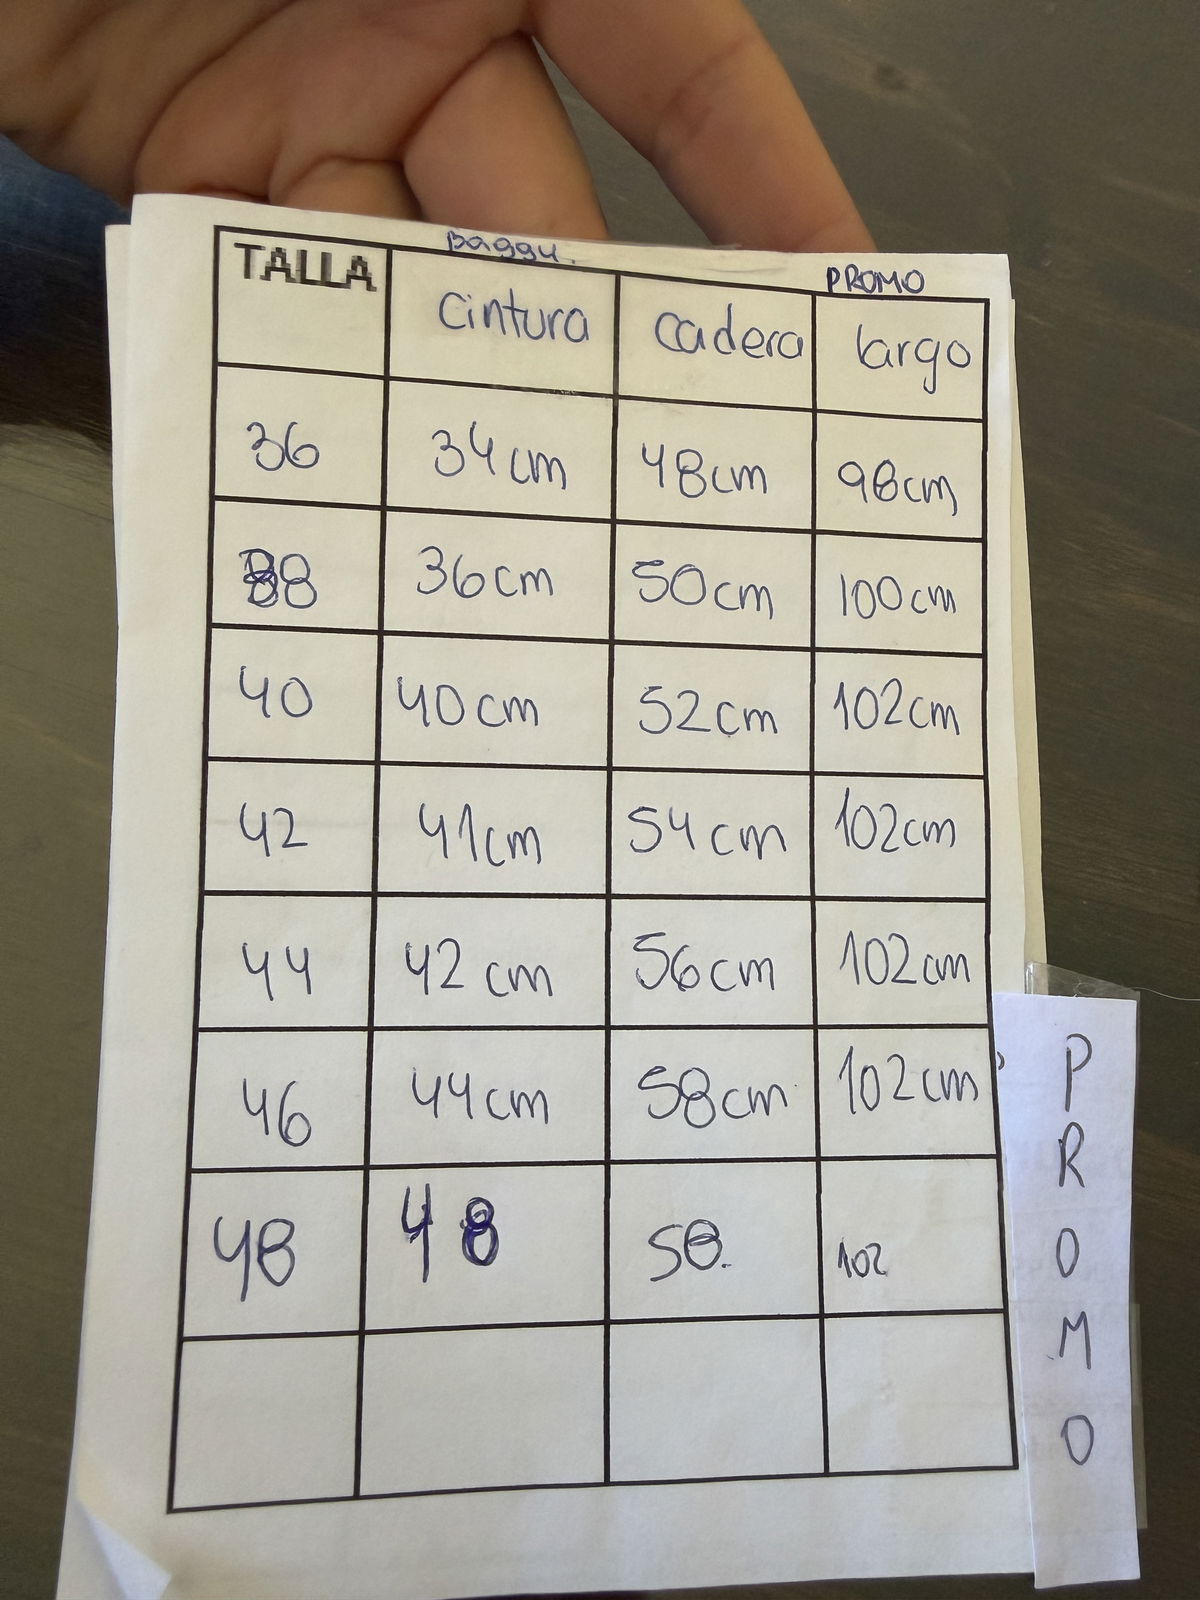 Baggy. PROMO
TALLA cintura cadera largo
36 34cm 48cm 98cm
38 36cm 50cm 100cm
40 40cm 52cm 102cm
42 41cm 54cm 102cm
44 42cm 56cm 102cm
46 44cm 58cm 102cm
48 48 58. 102
PROMO